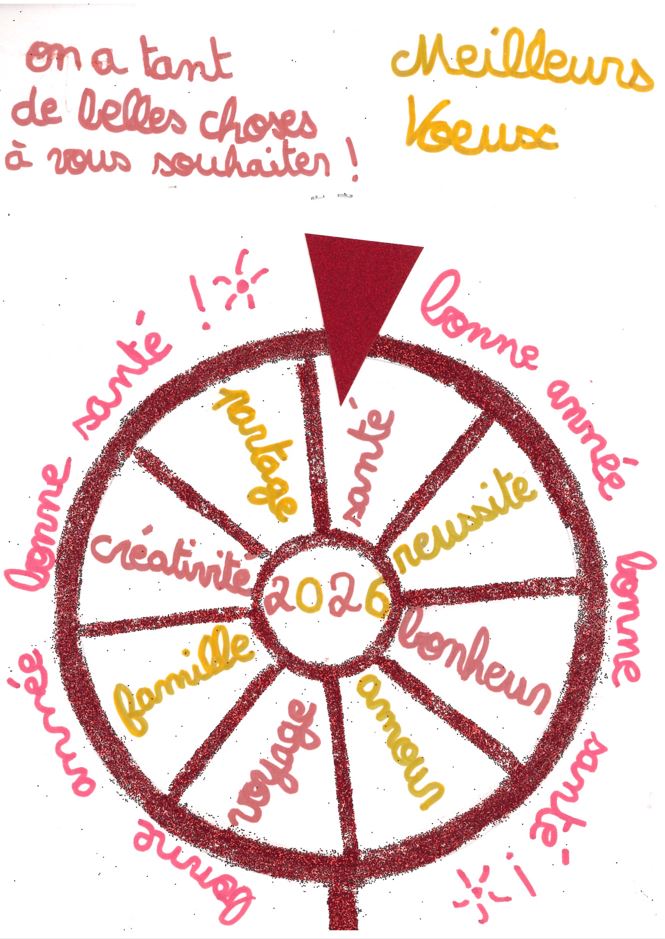 on a tant
de belles choses
à vous souhaiter !
Meilleurs
Voeux
bonne année
bonne santé !
bonne année
bonne santé !
santé
reussite
bonheur
amour
voyage
famille
créativité
partage
2026